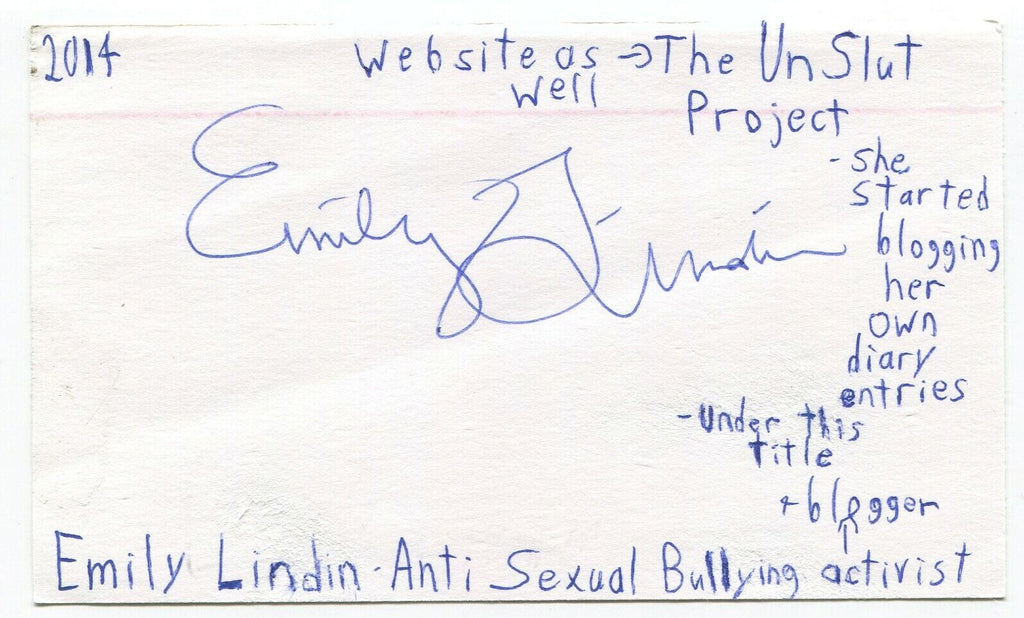 2014
Website as → The UnSlut
well
Project
- she
started
blogging
her
own
diary
entries
- Under this
title
+ blogger
Emily Lindin
Emily Lindin - Anti Sexual Bullying activist